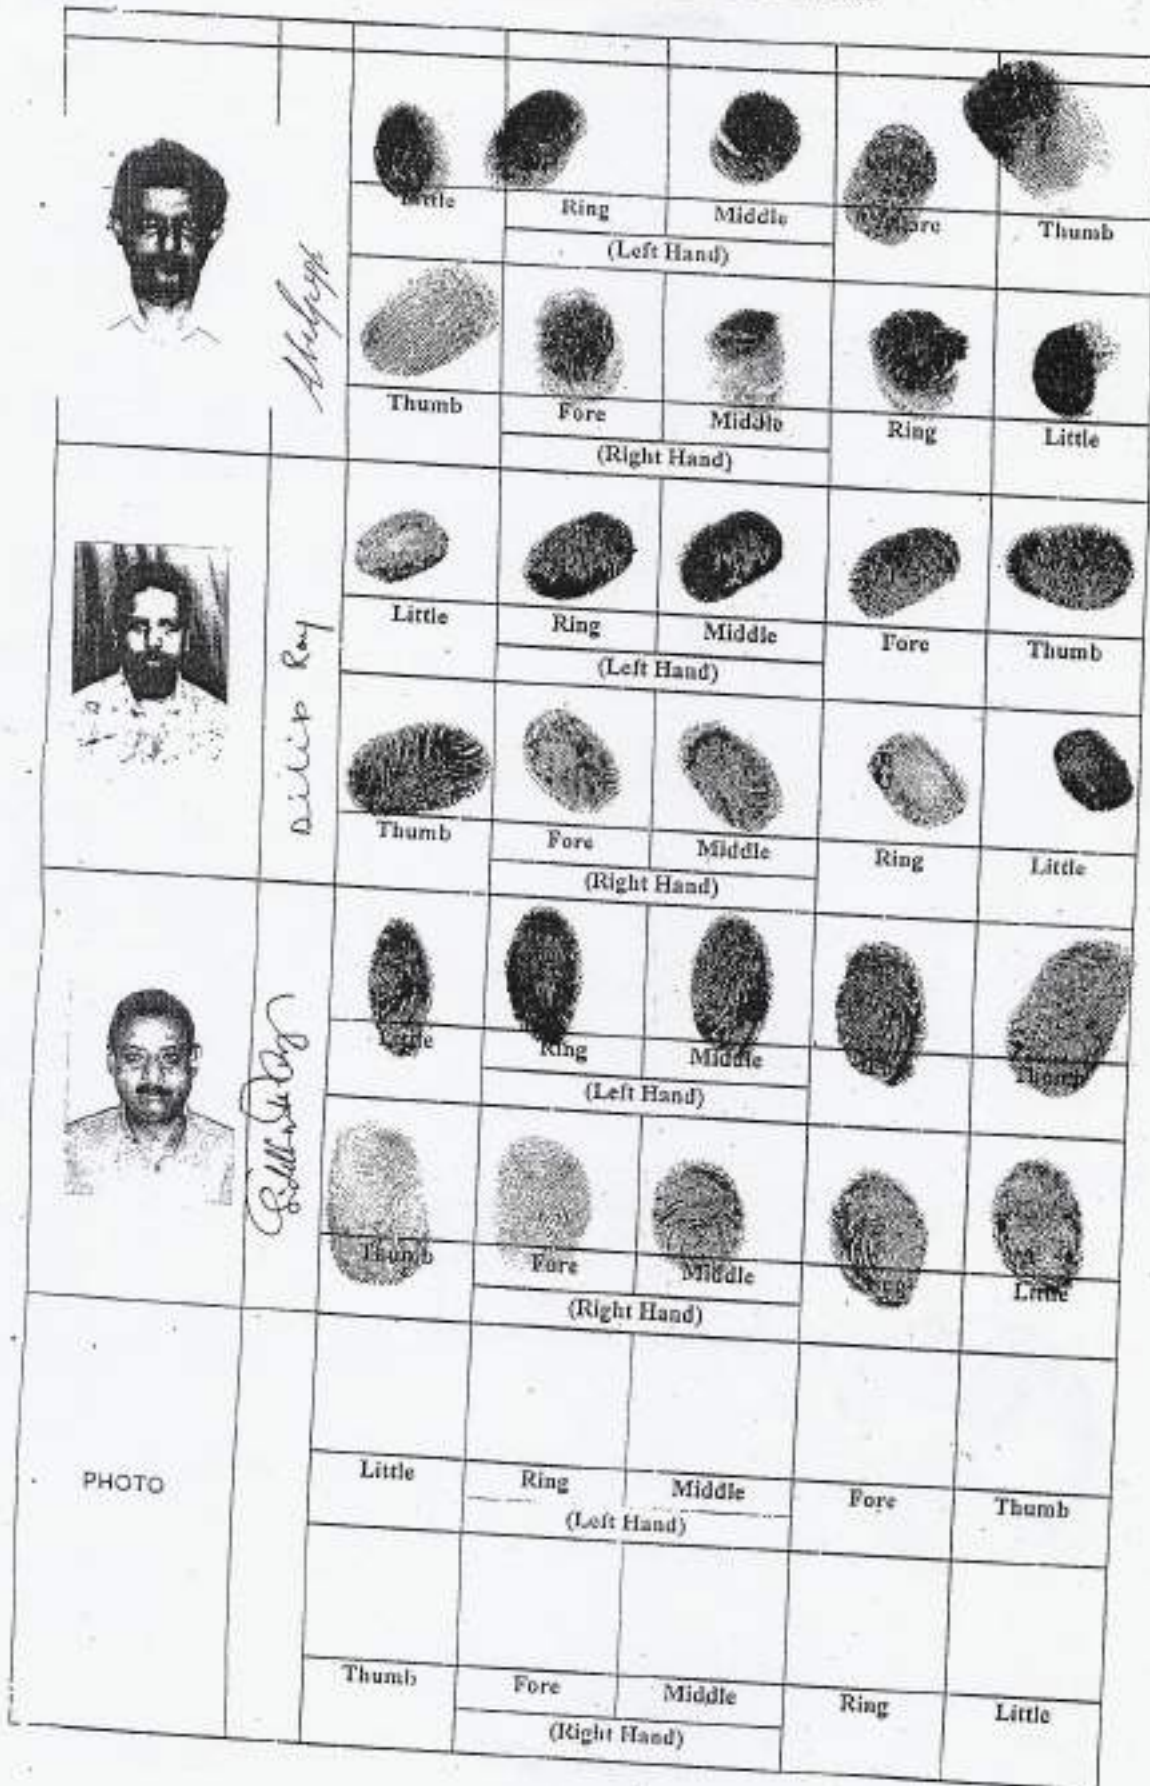 Little Ring Middle Fore Thumb
(Left Hand)
Thumb Fore Middle Ring Little
(Right Hand)
Dilip Roy
Little Ring Middle Fore Thumb
(Left Hand)
Thumb Fore Middle Ring Little
(Right Hand)
Little Ring Middle Thumb
(Left Hand)
Thumb Fore Middle Little
(Right Hand)
PHOTO
Little Ring Middle Fore Thumb
(Left Hand)
Thumb Fore Middle Ring Little
(Right Hand)